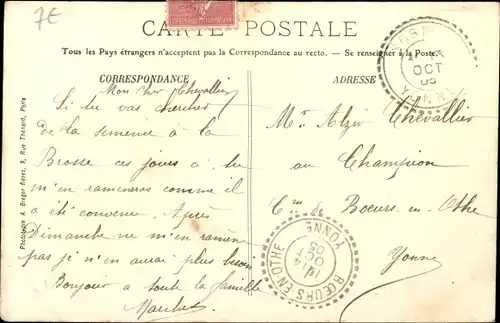 7E
CARTE POSTALE
Tous les Pays étrangers n'acceptent pas la Correspondance au recto. — Se renseigner à la Poste.
CORRESPONDANCE
ADRESSE
Mon cher Chevallier
Si tu vas chercher
de la semence à la
Brosse ces jours à tu
m'en rameneras comme il
a été convenu. Après
Dimanche ne m'en ramène
pas je n'en aurai plus besoin
Bonjour à toute la famille
Mr Alzir Chevallier
au Champion
Cne de Bœurs-en-Othe
Yonne
Phototypie A. Breger frères, 9, Rue Thénard, Paris
OCT
05
YONNE
BŒURS EN OTHE
14
OCT
05
YONNE